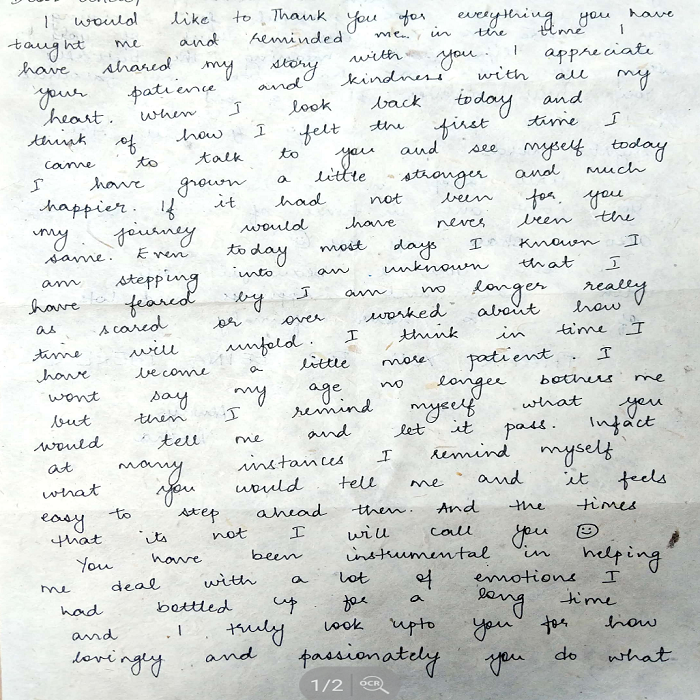 I would like to Thank you for everything you have
taught me and reminded me in the time I
have shared my story with you. I appreciate
your patience and kindness with all my
heart. When I look back today and
think of how I felt the first time I
came to talk to you and see myself today
I have grown a little stronger and much
happier. If it had not been for you
my journey would have never been the
same. Even today most days I known I
am stepping into an unknown that I
have feared by I am no longer really
as scared or over worked about how
time will unfold. I think in time I
have become a little more patient. I
wont say my age no longer bothers me
but then I remind myself what you
would tell me and let it pass. Infact
at many instances I remind myself
what you would tell me and it feels
easy to step ahead then. And the times
that its not I will call you ☺
You have been instrumental in helping
me deal with a lot of emotions I
had bottled up for a long time
and I truly look upto you for how
lovingly and passionately you do what
1/2 OCR